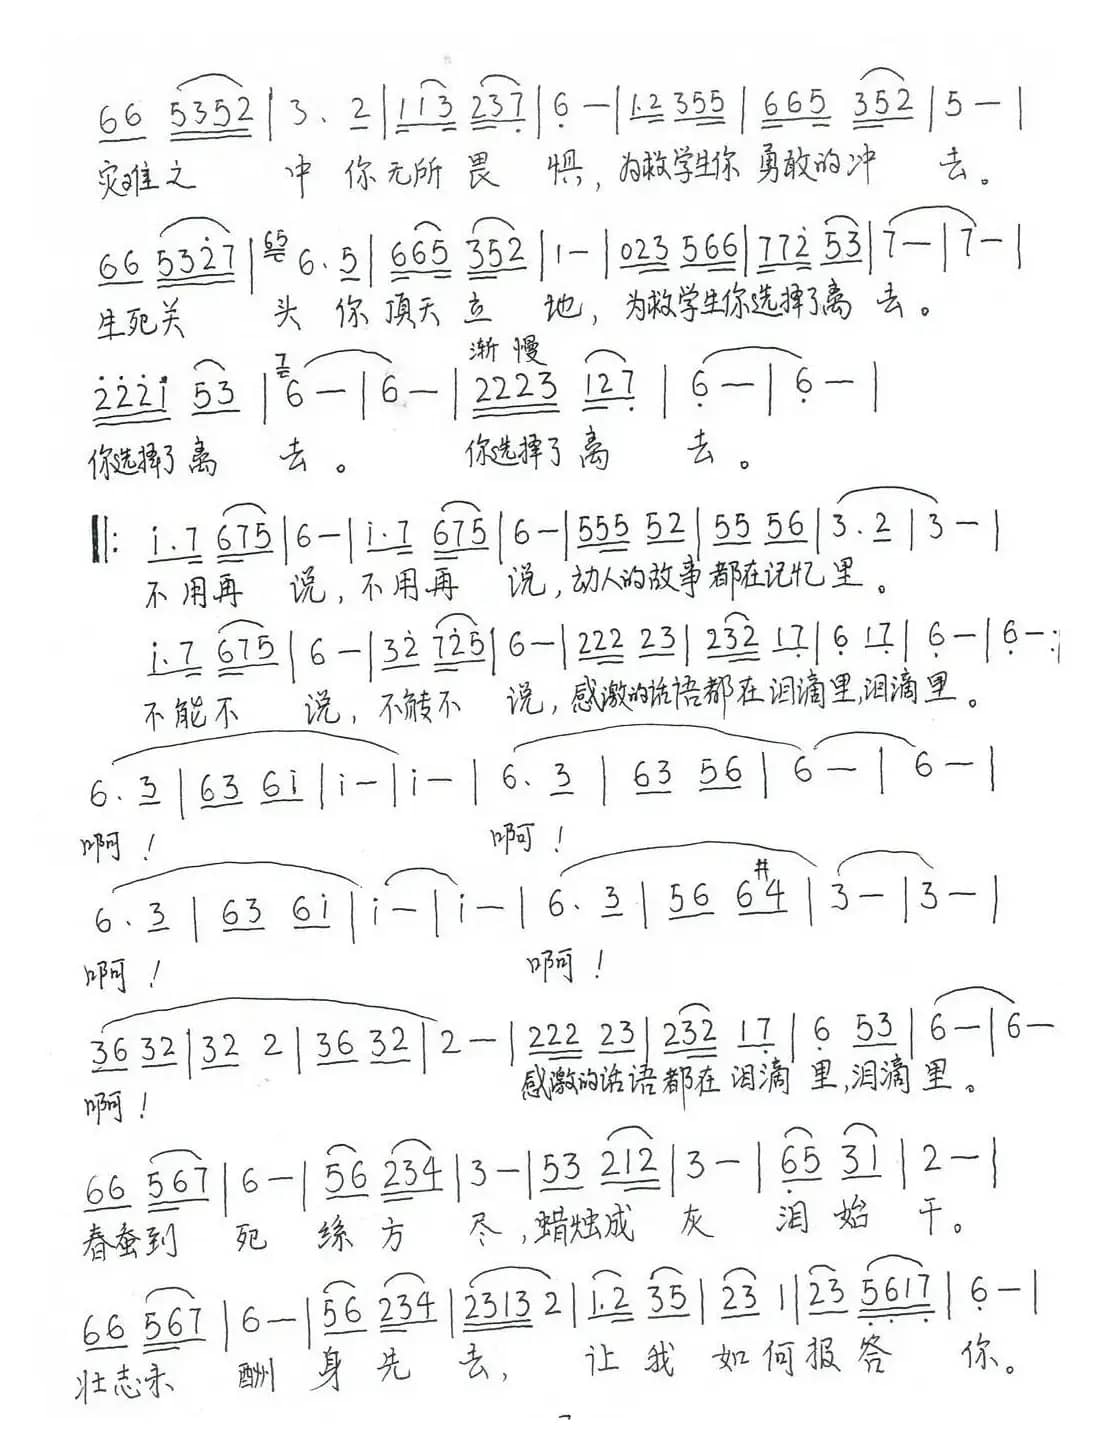 66 5352 | 3. 2 | 113 237 | 6 — | 1.2 355 | 665 352 | 5 — |
灾难之 中 你无所 畏 惧，为救学生你 勇敢的冲 去。
66 5327 | 65 6. 5 | 665 352 | 1 — | 023 566 | 772 53 | 7 — | 7 — |
生死关 头 你 顶天 立 地，为救学生你选择了离 去。
渐慢
2221 53 | 7 6 — | 6 — | 2223 127 | 6 — | 6 — |
你选择了离 去。 你选择了离 去。
‖: i.7 675 | 6 — | i.7 675 | 6 — | 555 52 | 55 56 | 3.2 | 3 — |
不用再 说，不用再 说，动人的故事都在记忆里。
i.7 675 | 6 — | 32 725 | 6 — | 222 23 | 232 17 | 6 17 | 6 — | 6 — :|
不能不 说，不能不 说，感激的话语都在泪滴里，泪滴里。
6. 3 | 63 6i | i — | i — | 6. 3 | 63 56 | 6 — | 6 — |
啊！ 啊！
6. 3 | 63 6i | i — | i — | 6. 3 | 56 6#4 | 3 — | 3 — |
啊！ 啊！
36 32 | 32 2 | 36 32 | 2 — | 222 23 | 232 17 | 6 53 | 6 — | 6 —
啊！ 感激的话语都在泪滴里，泪滴里。
66 567 | 6 — | 56 234 | 3 — | 53 212 | 3 — | 65 31 | 2 — |
春蚕到 死 丝方 尽，蜡烛成 灰 泪始 干。
66 567 | 6 — | 56 234 | 2313 2 | 1.2 35 | 23 1 | 23 5617 | 6 — |
壮志未 酬 身先 去，让我 如何报答 你。